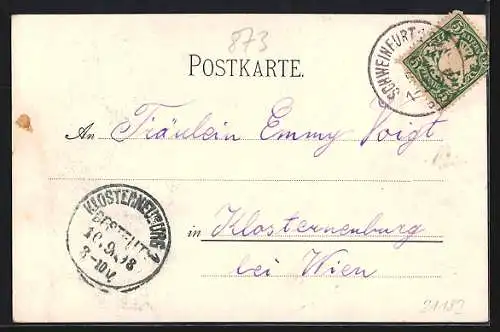 873
POSTKARTE.
SCHWEINFURT
5 5
An Fräulein Emmy Voigt
KLOSTERNEUBURG
BESTELLT
10.9.98
8-10V
in Klosterneuburg
bei Wien